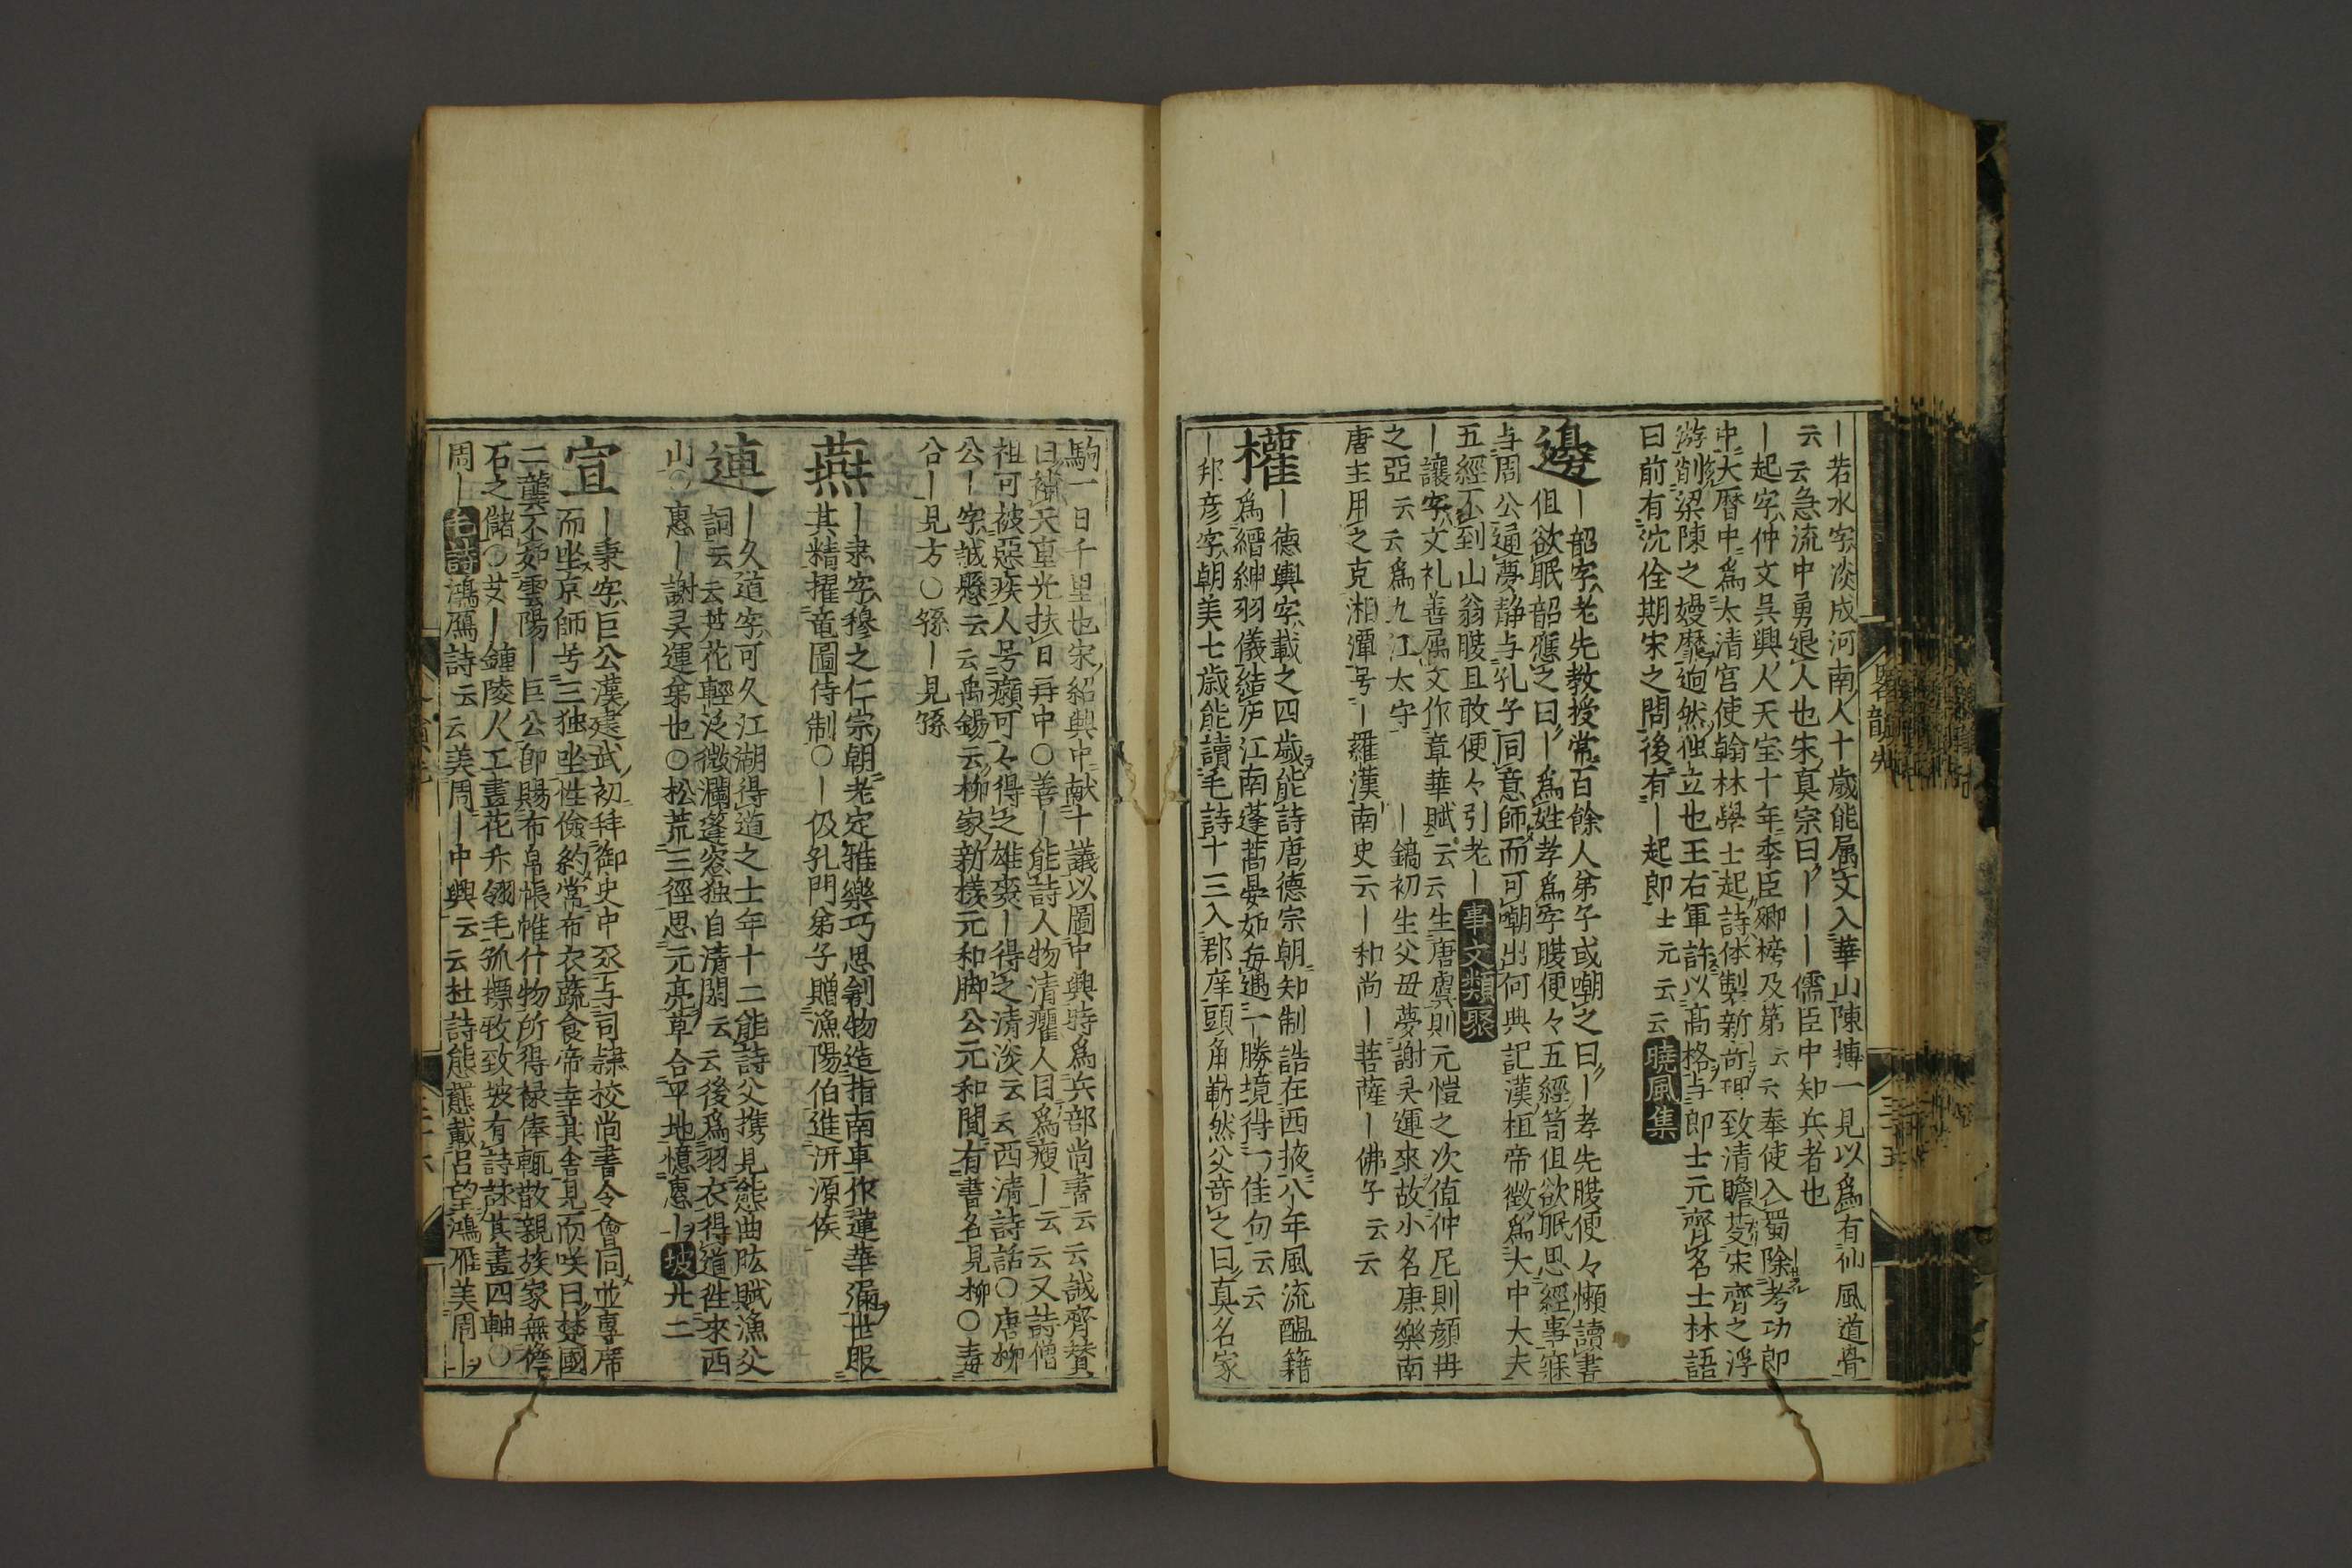 丨若水字淡成河南人十歳能属文入華山陳摶一見以為有仙風道骨
云云急流中勇退人也宋真宗曰丨丨丨儒臣中知兵者也
丨起字仲文呉興人天宝十年李臣卿榜及第云云奉使入蜀除考功郎
中大暦中為太清宮使翰林學士起詩体製新竒理致清贍芟宋齊之浮
游削梁陳之嫚靡逈然独立也王右軍許以髙格与郎士元齊名士林語
曰前有沈佺期宋之問後有丨起郎士元云云曉風集
邊
丨韶字老先教授常百餘人弟子或嘲之曰丨孝先腹便々懶讀書
但欲眠韶應之曰丨為姓孝為字腹便々五經笥但欲眠思經事寐
与周公通夢静与孔子同意師而可嘲出何典記漢桓帝徴為大中大夫
五經不到山翁腹且敢便々引老丨事文類聚
丨讓字文礼善属文作章華賦云云生唐虞則元愷之次值仲尼則顔冉
之亞云云為九江太守　丨鎬初生父毋夢謝灵運來故小名康樂南
唐主用之克湘潭号丨羅漢南史云丨和尚丨菩薩丨佛子云云
權
丨德輿字載之四歳能詩唐德宗朝知制誥在西掖八年風流醖籍
為縉紳羽儀結庐江南蓬蒿晏如毎遇一勝境得一佳句云云
丨邦彦字朝美七歳能讀毛詩十三入郡庠頭角嶄然父竒之曰真名家
駒一日千里也宋紹興中献十議以圖中興時為兵部尚書云云誠齊賛
曰補天重光扶日再中〇善丨能詩人物清癯人目為瘦丨云云又詩僧
祖可被惡疾人号癩可々得之雄爽丨得之清淡云云西清詩話〇唐柳
公丨字誠懸云云禹錫云柳家新樣元和脚公元和間有書名見柳〇毒
合丨見方〇孫丨見孫
燕
丨肅字穆之仁宗朝老定雅樂巧思剏物造指南車作蓮華漏世服
其精擢竜圖侍制〇丨伋孔門弟子贈漁陽伯進汧源侯
連
丨久道字可久江湖得道之士年十二能詩父携見熊曲肱賦漁父
詞云云芦花輕泛微瀾篷窓独自清閑云云後為羽衣得道徃來西
山〇惠丨謝灵運弟也〇松荒三徑思元亮草合平地憶惠丨坡廾二
宣
丨秉字巨公漢建武初拜御史中丞与司隷校尚書令會同並専席
而坐京師号三独坐性儉約常布衣蔬食帝幸其舎見而咲曰楚國
二龔不如雲陽丨巨公即賜布帛帳帷什物所得禄俸輒散親族家無儋
石之儲〇艾丨鍾陵人工畫花卉翎毛孤摽牧致坡有詩詠其畫四軸〇
周丨毛詩鴻鴈詩云云美周丨中興云云杜詩態態戴呂望鴻雁美周丨